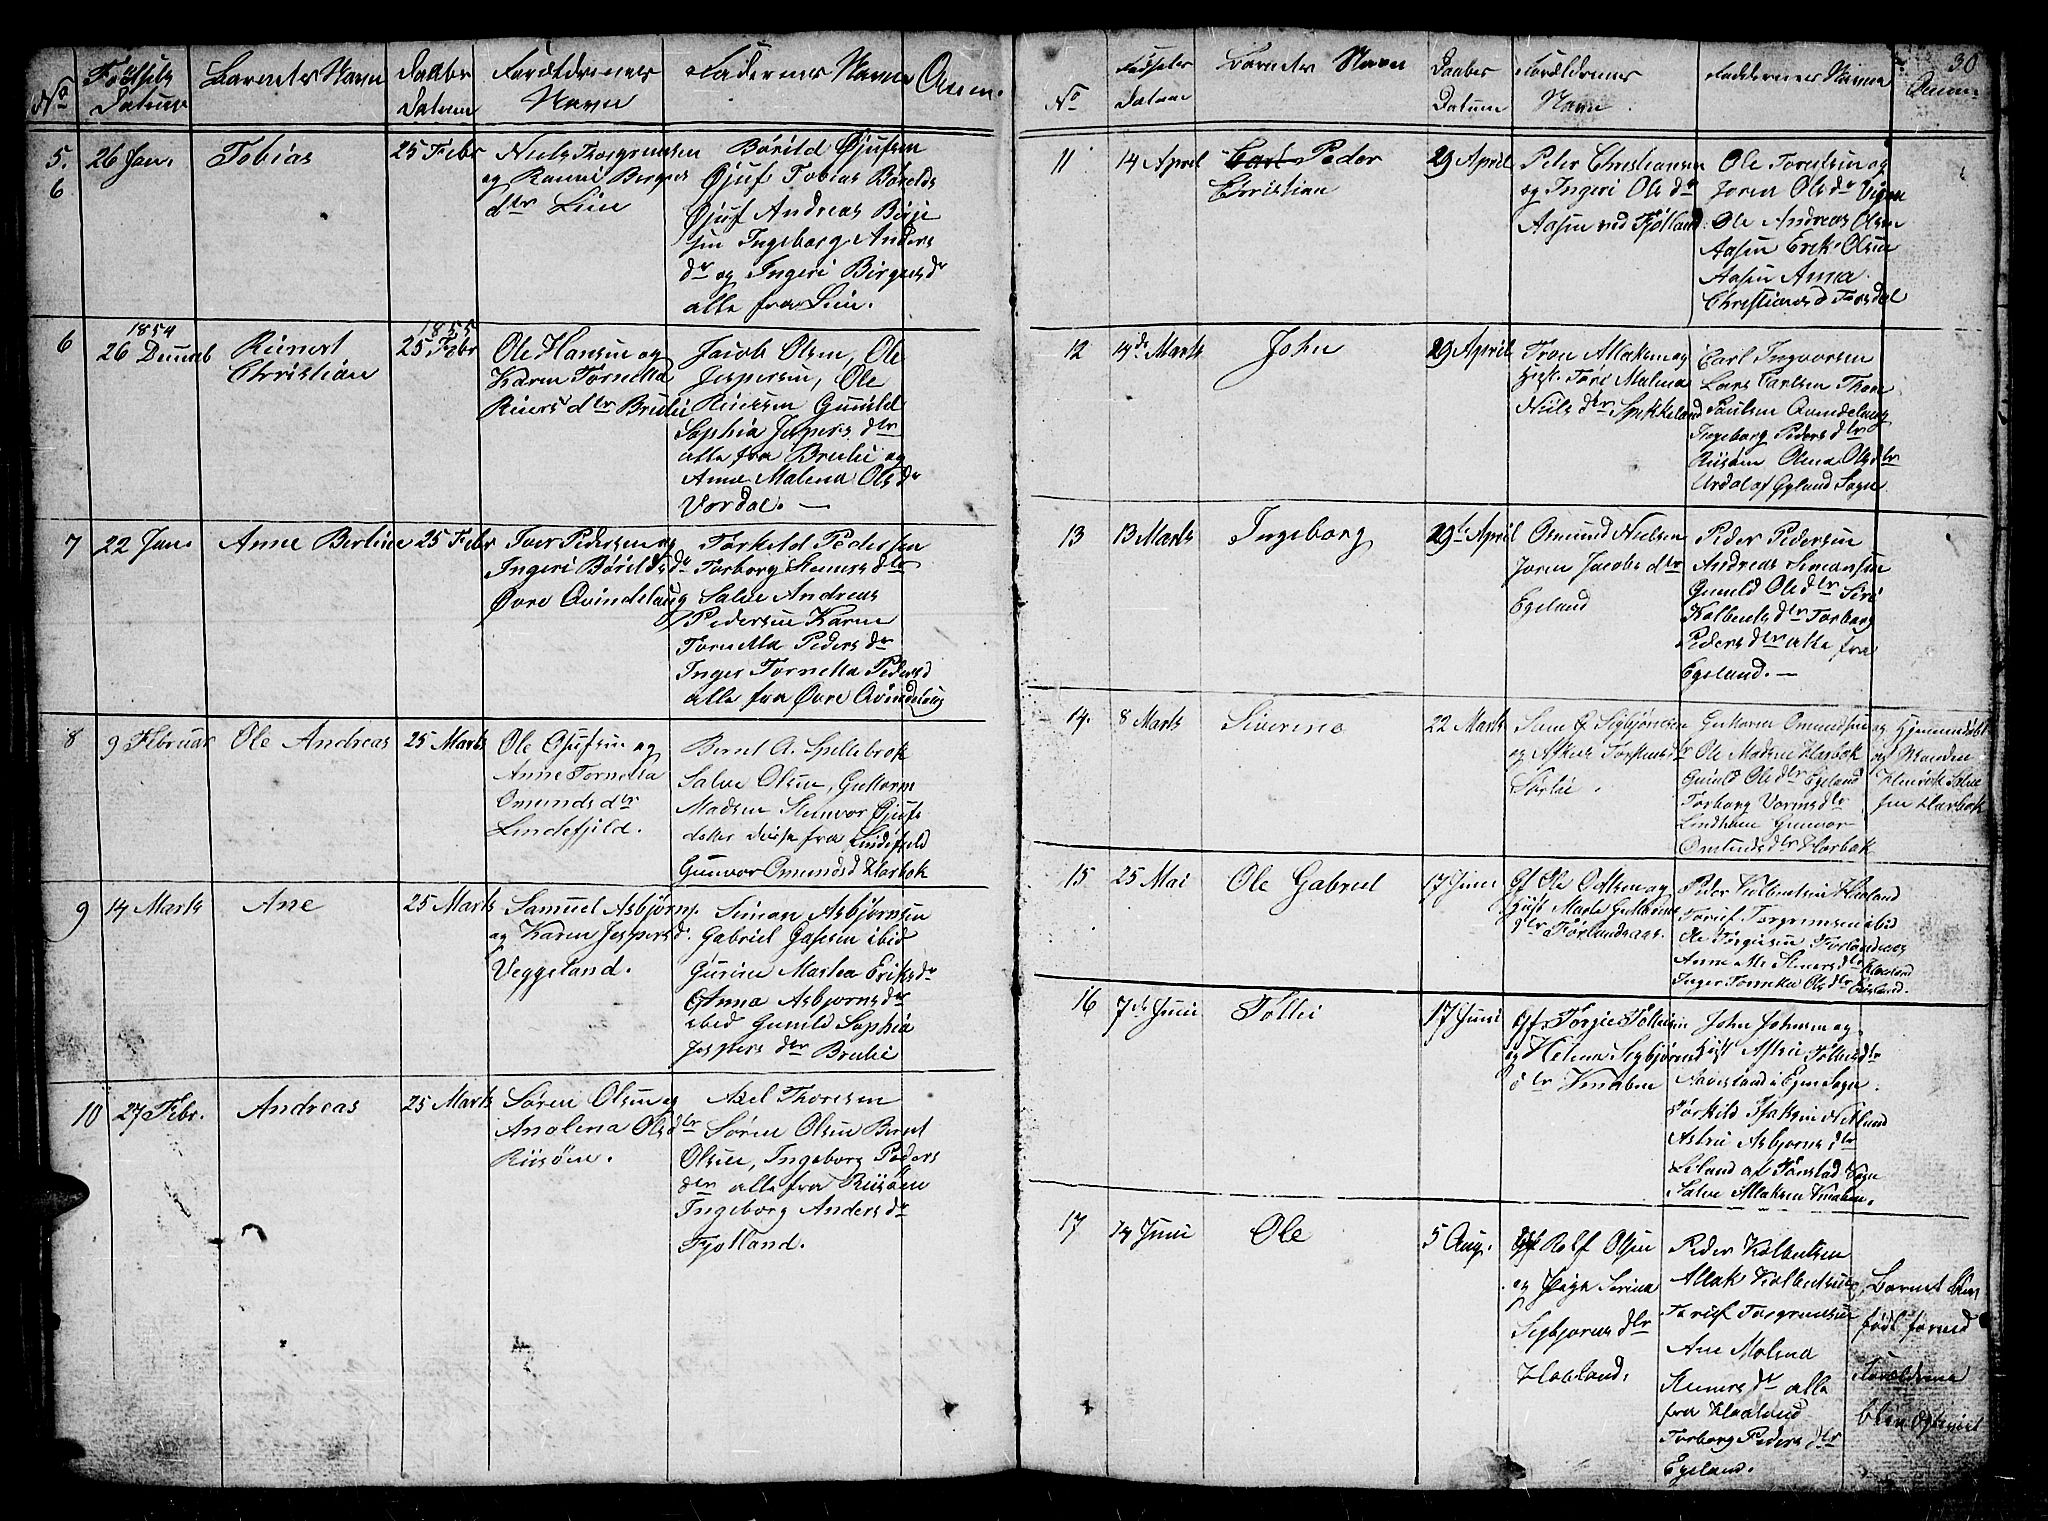 No Fødsels Datum Barnets Navn Daabs Datum Forældrenes Navn Faddernes Navne Anm.
5. 6 26 Jan. Tobias 25 Febr
Niels Torgrimsen
og Ranni Berges
dtr Lien
Børild Øjufsen
Øjuf Tobias Børilds
Øjuf Andreas Birje
sen Ingeborg Anders
dr og Ingeri Birgesdr
alle fra Lien.
6 1854 26 Decemb Reinert Christian 1855 25 Febr
Ole Hansen og
Karen Tornetta
Reiers dtr Brulie
Jacob Olsen, Ole
Jespersen, Ole
Reiersen Gunild
Sophia Jespers dtr
alle fra Brulie og
Anne Malena Ols dr
Vordal. —
7 22 Jan. Anne Bertine 25 Febr
Iver Pedersen og
Ingeri Børilds dr
Øvre Qvindelaug
Torkild Pedersen
Torborg Steners dtr
Salve Andreas
Pedersen Karen
Tornetta Peders dr
Inger Tornetta Pedersd
alle fra Øvre Qvindelaug
8 9 Februar Ole Andreas 25 Marts
Ole Øjufsen og
Anne Tornetta
Omunds dtr
Lindefjeld.
Bernt A. Spillebrok
Salve Olsen, Guttorm
Madsen Stenvor Øjufs
datter disse fra Lindefjeld
Gunvor Omundsd Harbok
9 14 Marts Ane 25 Marts
Samuel Asbjørns.
og Karen Jespersd.
Veggeland.
Simon Asbjørnsen
Gabriel ibid
Gurine Martea Eriksdr
Anna Asbjørnsdr
ibid Gunild Sophia
Jespers dtr Brulie
10 27 Febr. Andreas 25 Marts
Søren Olsen og
Anolena Ols dtr
Risøen.
Axel Thoresen
Søren Olsen Bernt
Olsen, Ingeborg Peders
dtr alle fra Risøen
Ingeborg Anders dr
Fjotland.
30
No Fødsels Datum Barnets Navn Daabs Datum Forældrenes Navn Faddernes Navne Anm
11 14 April Carl Peder Christian 29 April
Peder Christiansen
og Ingeri Ols dr
Aasen ved Fjotland
Ole Torgilsen og
Joren Ols dr Vigen
Ole Andreas Olsen
Aasen Erik Olsen
Aasen Anna
Christians d Torsdal
12 14de Marts John 29 April
Tron Allaksen og
Hust. Tore Malena
Niels dtr Spikkeland
Carl Ingvorsen
Lars Carlsen Thore
Paulsen Qvindelaug
Ingeborg Peders dtr
Risøen Olena Ols dtr
Urdal af Gyland Sogn
13 13 Marts Ingeborg 29te April
Osmund Nielsen
Joren Jacobs dtr
Egeland
Peder Pedersen
Andreas Simonsen
Gunild Ole dtr Siri
Kolbents dtr Torborg
Peders dtr alle fra
Egeland. —
14. 8 Marts Siverine 22 Marts
Sem Sigbjørnsen
og Torkens dtr
Lørlie.
Guttorm Omundsen og
Ole Madsen Harbok
Gunild Ols dtr Egeland
Torborg Vorms dtr
Lindhom Gunvor
Omunds dtr Harbok
Hjemmedøbt
af Manden
Henrik Salve
sen Harbok
15 25 Mai Ole Gabriel 17 Juni
Gf Ole Odtsen og
Hust Marte Guttorms
dtr Førlandsaas.
Peder Kolbentsen Haaland
Toruf Torgrimsen ibid
Ole Torgiusen Førlandsaas
Anne Ma Steners dtr Haaland
Inger Tornetta Ols dtr Haaland.
16 7de Juni Tollei 17 Juni
Gf Torgie Tolleisen
og Helene Sigbjørns
dtr Knaben
John Johnsen og
Hust Astri Tolleis dtr
Aavesland i Egen Sogn
Torkild Isaksen Netland
Astri Asbjørns dtr
Liland af Tonstad Sogn
Salve Atlaksen Knaben.
17 14 Juni Ole 5 Aug.
Gf Rolf Olsen
og Pige Serina
Sigbjørns dtr
Haaland.
Peder Kolbentsen
Atlak Kolbentsen
Toruf Torgrimsen
Ane Malena
Steners dr alle
fra Haaland
Torborg Peders dtr
Egeland.
Barnet blev
født forend
Forældrene
blev Egteviet